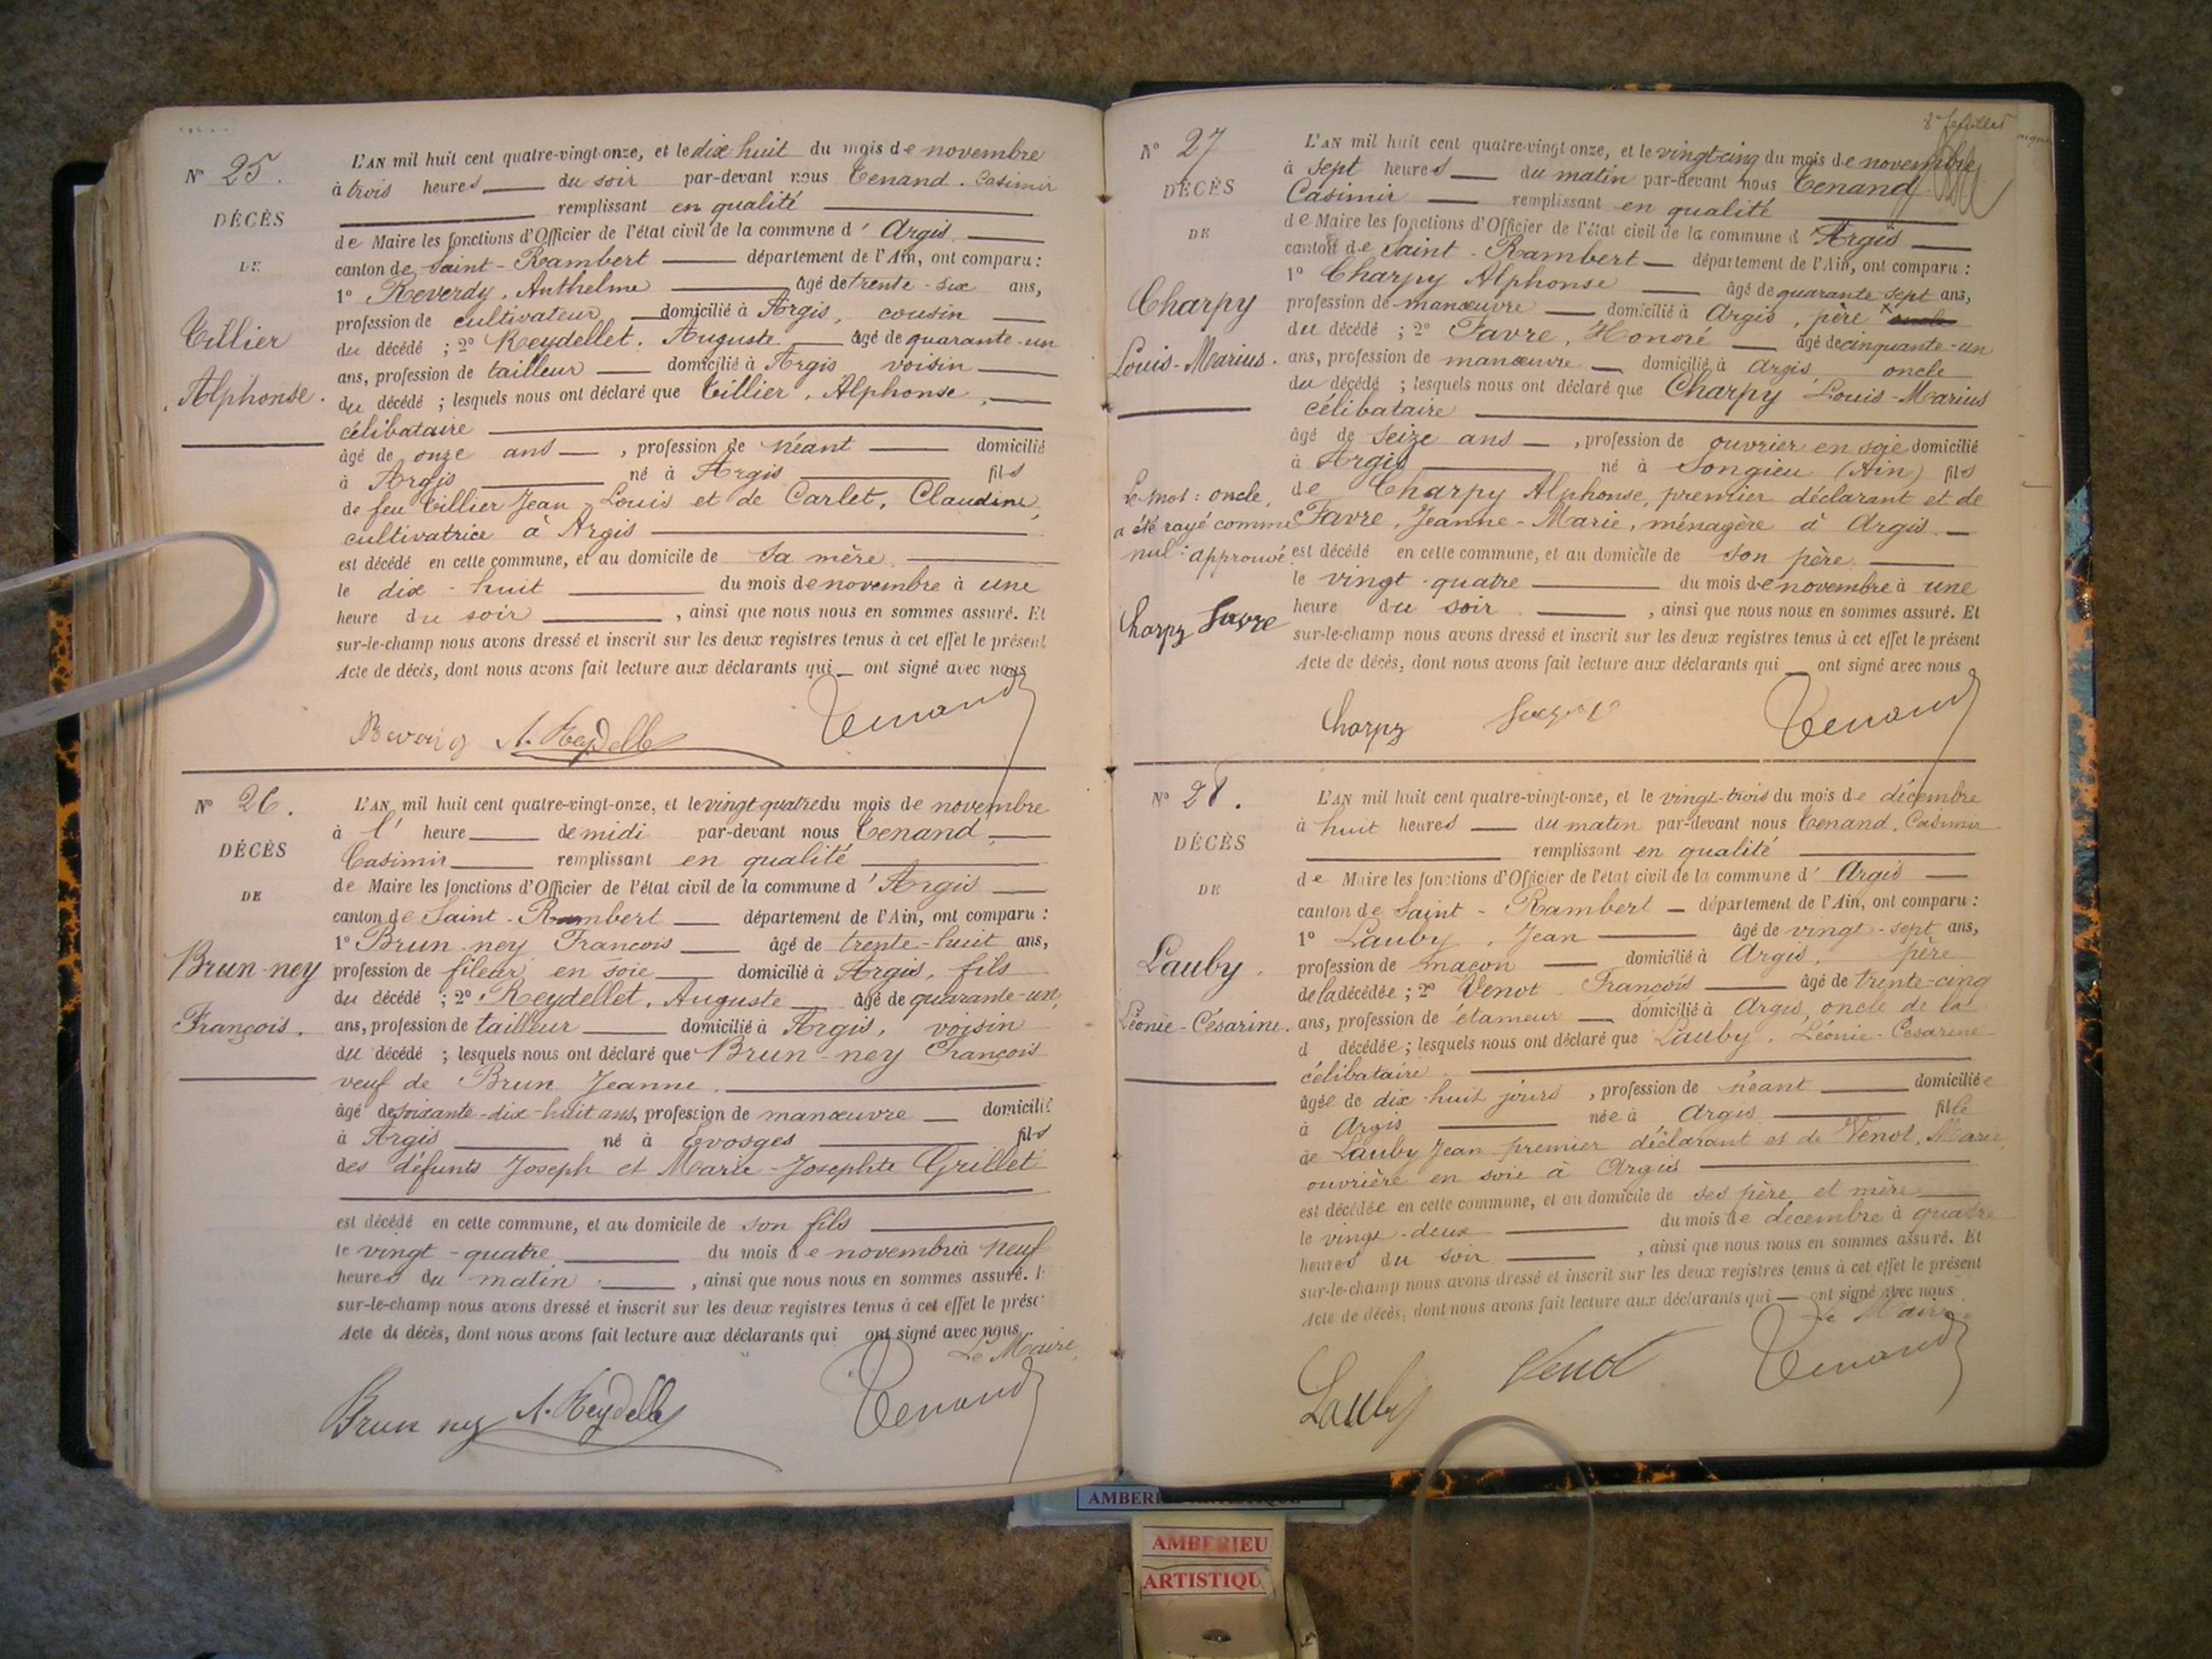 N° 25.
DÉCÈS
DE
Tillier
Alphonse.
L'AN mil huit cent quatre-vingt-onze, et le dix huit du mois de novembre
à trois heures du soir par-devant nous Tenand. Casimir
remplissant en qualité
de Maire les fonctions d'Officier de l'état civil de la commune d'Argis
canton de Saint-Rambert département de l'Ain, ont comparu :
1° Reverdy, Anthelme âgé de trente-six ans,
profession de cultivateur domicilié à Argis, cousin
du décédé ; 2° Reydellet. Auguste âgé de quarante-un
ans, profession de tailleur domicilié à Argis voisin
du décédé ; lesquels nous ont déclaré que Tillier, Alphonse,
célibataire
âgé de onze ans, profession de néant domicilié
à Argis né à Argis fils
de feu Tillier Jean Louis et de Carlet, Claudine,
cultivatrice à Argis
est décédé en cette commune, et au domicile de sa mère
le dix-huit du mois de novembre à une
heure du soir, ainsi que nous nous en sommes assuré. Et
sur-le-champ nous avons dressé et inscrit sur les deux registres tenus à cet effet le présent
Acte de décès, dont nous avons fait lecture aux déclarants qui ont signé avec nous
A. Reydellet Tenand
N° 26.
DÉCÈS
DE
Brun-ney
François.
L'AN mil huit cent quatre-vingt-onze, et le vingt-quatre du mois de novembre
à l' heure de midi par-devant nous Tenand,
Casimir remplissant en qualité
de Maire les fonctions d'Officier de l'état civil de la commune d'Argis
canton de Saint-Rambert département de l'Ain, ont comparu :
1° Brun-ney François âgé de trente-huit ans,
profession de fileur en soie domicilié à Argis, fils
du décédé ; 2° Reydellet, Auguste âgé de quarante-un,
ans, profession de tailleur domicilié à Argis, voisin
du décédé ; lesquels nous ont déclaré que Brun-ney François
veuf de Brun Jeanne.
âgé de soixante-dix-huit ans, profession de manœuvre domicilié
à Argis né à Evosges fils
des défunts Joseph et Marie-Josephte Grillet
est décédé en cette commune, et au domicile de son fils
le vingt-quatre du mois de novembre à neuf
heures du matin, ainsi que nous nous en sommes assuré. E
sur-le-champ nous avons dressé et inscrit sur les deux registres tenus à cet effet le prése
Acte de décès, dont nous avons fait lecture aux déclarants qui ont signé avec nous.
Le Maire,
Brun ney A. Reydellet Tenand
8e feuillet
N° 27
DÉCÈS
DE
Charpy
Louis-Marius.
Le mot : oncle,
a été rayé comme
nul : approuvé.
Charpy Favre
L'AN mil huit cent quatre-vingt-onze, et le vingt-cinq du mois de novembre
à sept heures du matin par-devant nous Tenand
Casimir remplissant en qualité
de Maire les fonctions d'Officier de l'état civil de la commune d'Argis
canton de Saint-Rambert département de l'Ain, ont comparu :
1° Charpy Alphonse âgé de quarante-sept ans,
profession de manœuvre domicilié à Argis, père oncle
du décédé ; 2° Favre, Honoré âgé de cinquante-un
ans, profession de manœuvre domicilié à Argis oncle
du décédé ; lesquels nous ont déclaré que Charpy Louis-Marius
célibataire
âgé de seize ans, profession de ouvrier en soie domicilié
à Argis né à Songieu (Ain) fils
de Charpy Alphonse, premier déclarant et de
Favre, Jeanne-Marie, ménagère à Argis.
est décédé en cette commune, et au domicile de son père
le vingt-quatre du mois de novembre à une
heure du soir, ainsi que nous nous en sommes assuré. Et
sur-le-champ nous avons dressé et inscrit sur les deux registres tenus à cet effet le présent
Acte de décès, dont nous avons fait lecture aux déclarants qui ont signé avec nous
Charpy Tenand
N° 28.
DÉCÈS
DE
Lauby.
Léonie-Césarine.
L'AN mil huit cent quatre-vingt-onze, et le vingt-trois du mois de décembre
à huit heures du matin par-devant nous Tenand. Casimir
remplissant en qualité
de Maire les fonctions d'Officier de l'état civil de la commune d'Argis
canton de Saint-Rambert département de l'Ain, ont comparu :
1° Lauby, Jean âgé de vingt-sept ans,
profession de maçon domicilié à Argis. père
de la décédée ; 2° Venot François âgé de trente-cinq
ans, profession de étameur domicilié à Argis, oncle de la
d décédée ; lesquels nous ont déclaré que Lauby. Léonie-Césarine
célibataire.
âgée de dix-huit jours, profession de néant domiciliée
à Argis née à Argis fille
de Lauby Jean premier déclarant et de Venot, Marie
ouvrière en soie à Argis
est décédée en cette commune, et au domicile de ses père et mère
le vingt-deux du mois de décembre à quatre
heures du soir, ainsi que nous nous en sommes assuré. Et
sur-le-champ nous avons dressé et inscrit sur les deux registres tenus à cet effet le présent
Acte de décès, dont nous avons fait lecture aux déclarants qui ont signé avec nous.
Le Maire
Lauby Venot Tenand
AMBERIEU
ARTISTIQU